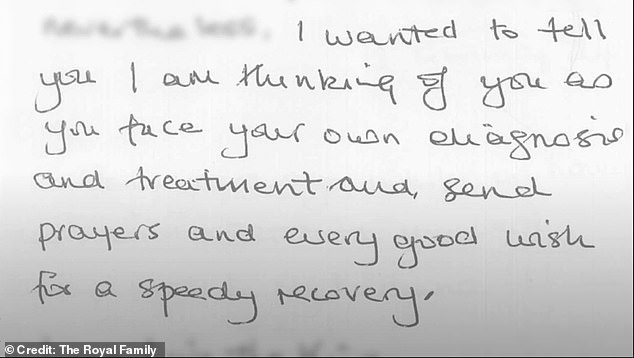 I wanted to tell
you I am thinking of you as
you face your own diagnosis
and treatment and, send
prayers and every good wish
for a speedy recovery.
© Credit: The Royal Family